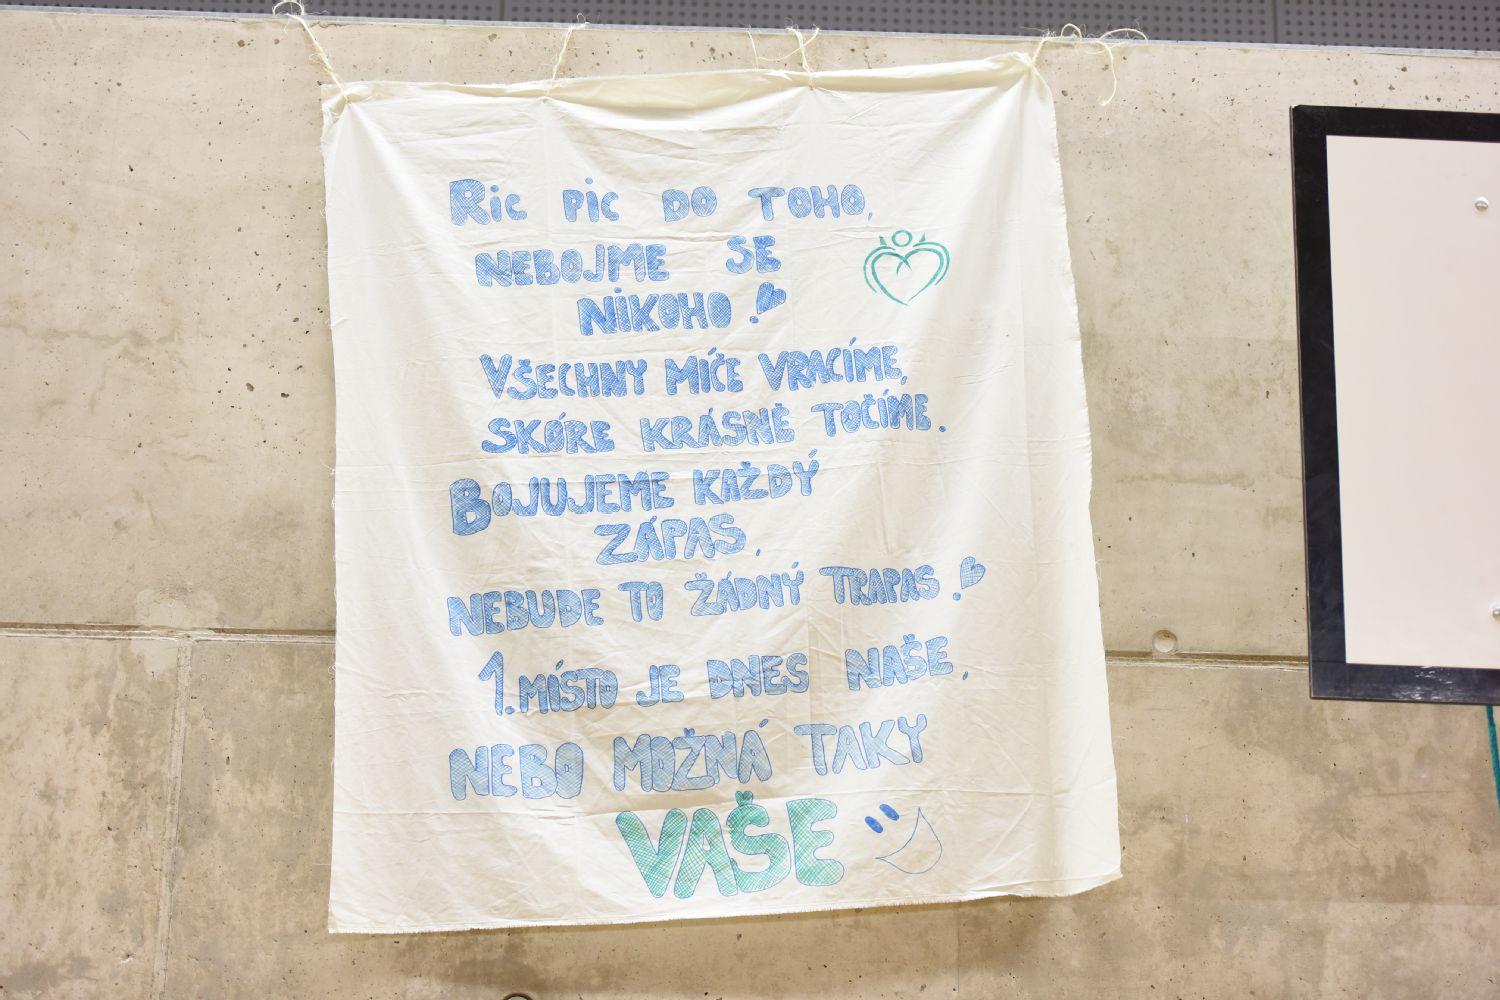 RiC PiC DO TOHO,
NEBOJME SE
NiKOHO!
VŠECHNY MÍČE VRACÍME,
SKÓRE KRÁSNĚ TOČÍME.
BOJUJEME KAŽDÝ
ZÁPAS,
NEBUDE TO ŽÁDNÝ TRAPAS!
1. MÍSTO JE DNES NAŠE,
NEBO MOŽNÁ TAKY
VAŠE